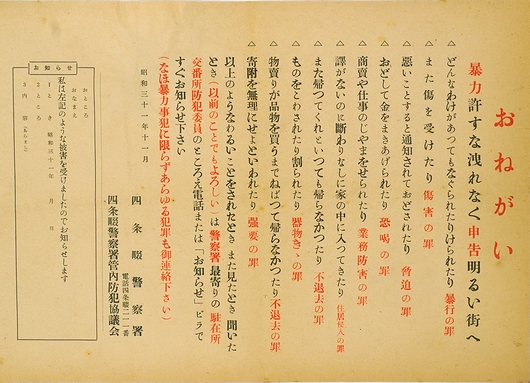 おねがい
暴力許すな洩れなく申告明るい街へ
△ どんなわけがあつてもなぐられたりけられたり 暴行の罪
△ また傷を受けたり 傷害の罪
△ 悪いことすると通知されておどされたり 脅迫の罪
△ おどして金をまきあげられたり 恐喝の罪
△ 商売や仕事のじやまをせられたり 業務防害の罪
△ 譯がないのに断わりなしに家の中に入つてきたり 住居侵入の罪
△ また帰つてくれといつても帰らなかつたり 不退去の罪
△ ものをこわされたり割られたり 器物きゝの罪
△ 物賣りが品物を買うまでねばつて帰らなかつたり 不退去の罪
△ 寄附を無理にせよといわれたり 強要の罪
以上のようなわるいことをされたとき また見たとき 聞いた
とき(以前のことでもよろしい)は 警察署 最寄りの 駐在所
交番所防犯委員のところえ電話または「お知らせ」ビラで
すぐお知らせ下さい
(なほ暴力事犯に限らずあらゆる犯罪も御連絡下さい)
昭和三十一年十一月
四條畷警察署
電話四條畷二一番
四条畷警察署管内防犯協議会
お知らせ
おところ
おなまえ
私は左記のような被害を受けましたのでお知らせします
1 とき 昭和三十一年 月 日
2 ところ
3 内容